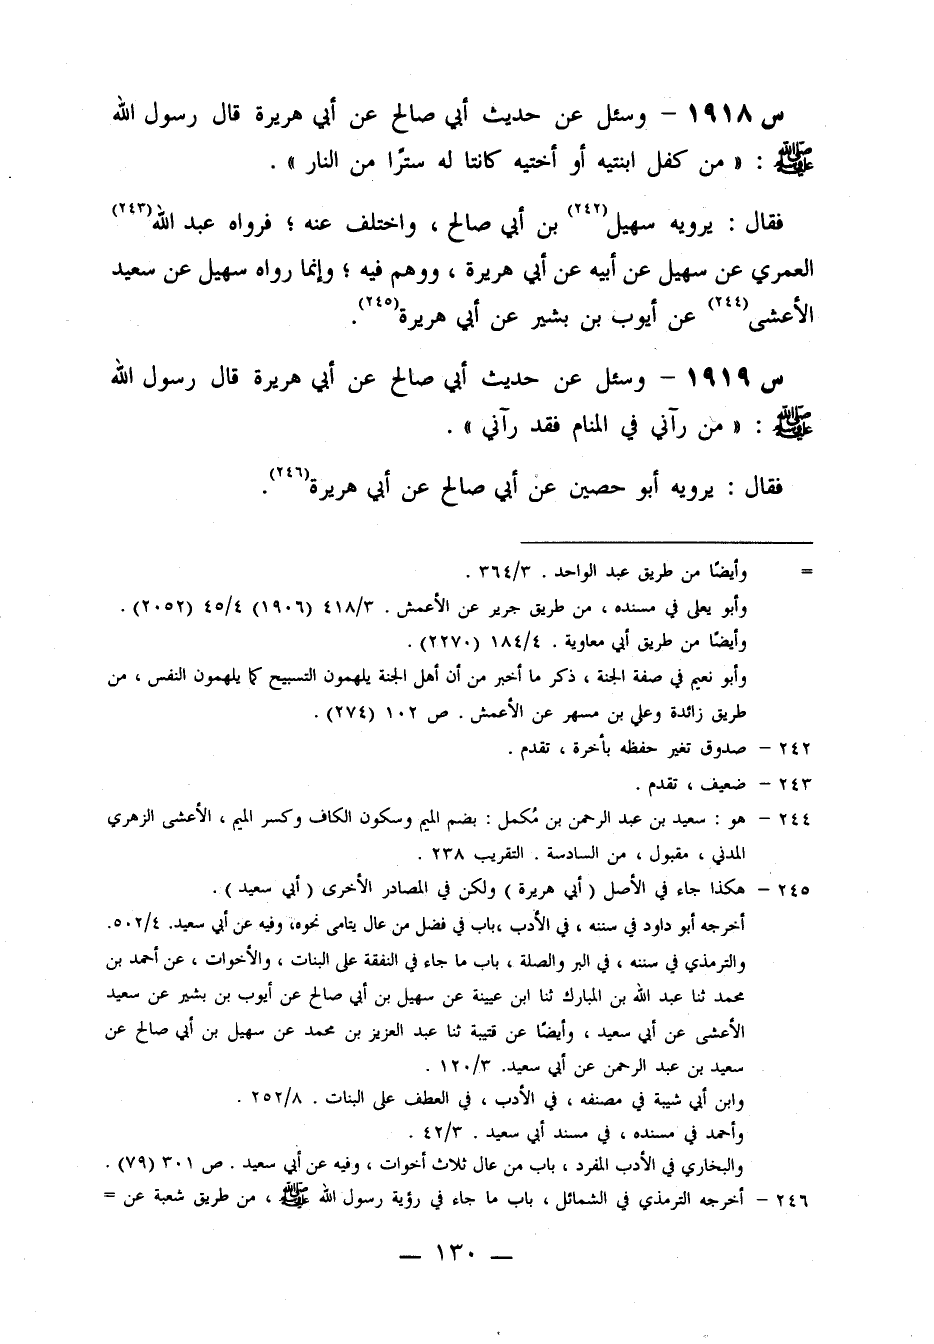 س ١٩١٨ – وسئل عن حديث أبي صالح عن أبي هريرة قال رسول الله
ﷺ : « من كفل ابنتيه أو أختيه كانتا له سترًا من النار » .
فقال : يرويه سهيل(٢٤٢) بن أبي صالح ، واختلف عنه ؛ فرواه عبد الله(٢٤٣)
العمري عن سهيل عن أبيه عن أبي هريرة ، ووهم فيه ؛ وإنما رواه سهيل عن سعيد
الأعشى(٢٤٤) عن أيوب بن بشير عن أبي هريرة(٢٤٥).
س ١٩١٩ – وسئل عن حديث أبي صالح عن أبي هريرة قال رسول الله
ﷺ : « من رآني في المنام فقد رآني » .
فقال : يرويه أبو حصين عن أبي صالح عن أبي هريرة(٢٤٦).
= وأيضًا من طريق عبد الواحد . ٣٦٤/٣ .
وأبو يعلى في مسنده ، من طريق جرير عن الأعمش . ٤١٨/٣ (١٩٠٦) ٤٥/٤ (٢٠٥٢) .
وأيضًا من طريق أبي معاوية . ١٨٤/٤ (٢٢٧٠) .
وأبو نعيم في صفة الجنة ، ذكر ما أخبر من أن أهل الجنة يلهمون التسبيح كما يلهمون النفس ، من
طريق زائدة وعلي بن مسهر عن الأعمش . ص ١٠٢ (٢٧٤) .
٢٤٢ – صدوق تغير حفظه بأخرة ، تقدم .
٢٤٣ – ضعيف ، تقدم .
٢٤٤ – هو : سعيد بن عبد الرحمن بن مُكمل : بضم الميم وسكون الكاف وكسر الميم ، الأعشى الزهري
المدني ، مقبول ، من السادسة . التقريب ٢٣٨ .
٢٤٥ – هكذا جاء في الأصل ( أبي هريرة ) ولكن في المصادر الأخرى ( أبي سعيد ) .
أخرجه أبو داود في سننه ، في الأدب ،باب في فضل من عال يتامى نحوه، وفيه عن أبي سعيد. ٥٠٢/٤.
والترمذي في سننه ، في البر والصلة ، باب ما جاء في النفقة على البنات ، والأخوات ، عن أحمد بن
محمد ثنا عبد الله بن المبارك ثنا ابن عيينة عن سهيل بن أبي صالح عن أيوب بن بشير عن سعيد
الأعشى عن أبي سعيد ، وأيضًا عن قتيبة ثنا عبد العزيز بن محمد عن سهيل بن أبي صالح عن
سعيد بن عبد الرحمن عن أبي سعيد. ١٢٠/٣ .
وابن أبي شيبة في مصنفه ، في الأدب ، في العطف على البنات . ٢٥٢/٨ .
وأحمد في مسنده ، في مسند أبي سعيد . ٤٢/٣ .
والبخاري في الأدب المفرد ، باب من عال ثلاث أخوات ، وفيه عن أبي سعيد . ص ٣٠١ (٧٩) .
٢٤٦ – أخرجه الترمذي في الشمائل ، باب ما جاء في رؤية رسول الله ﷺ ، من طريق شعبة عن =
— ١٣٠ —